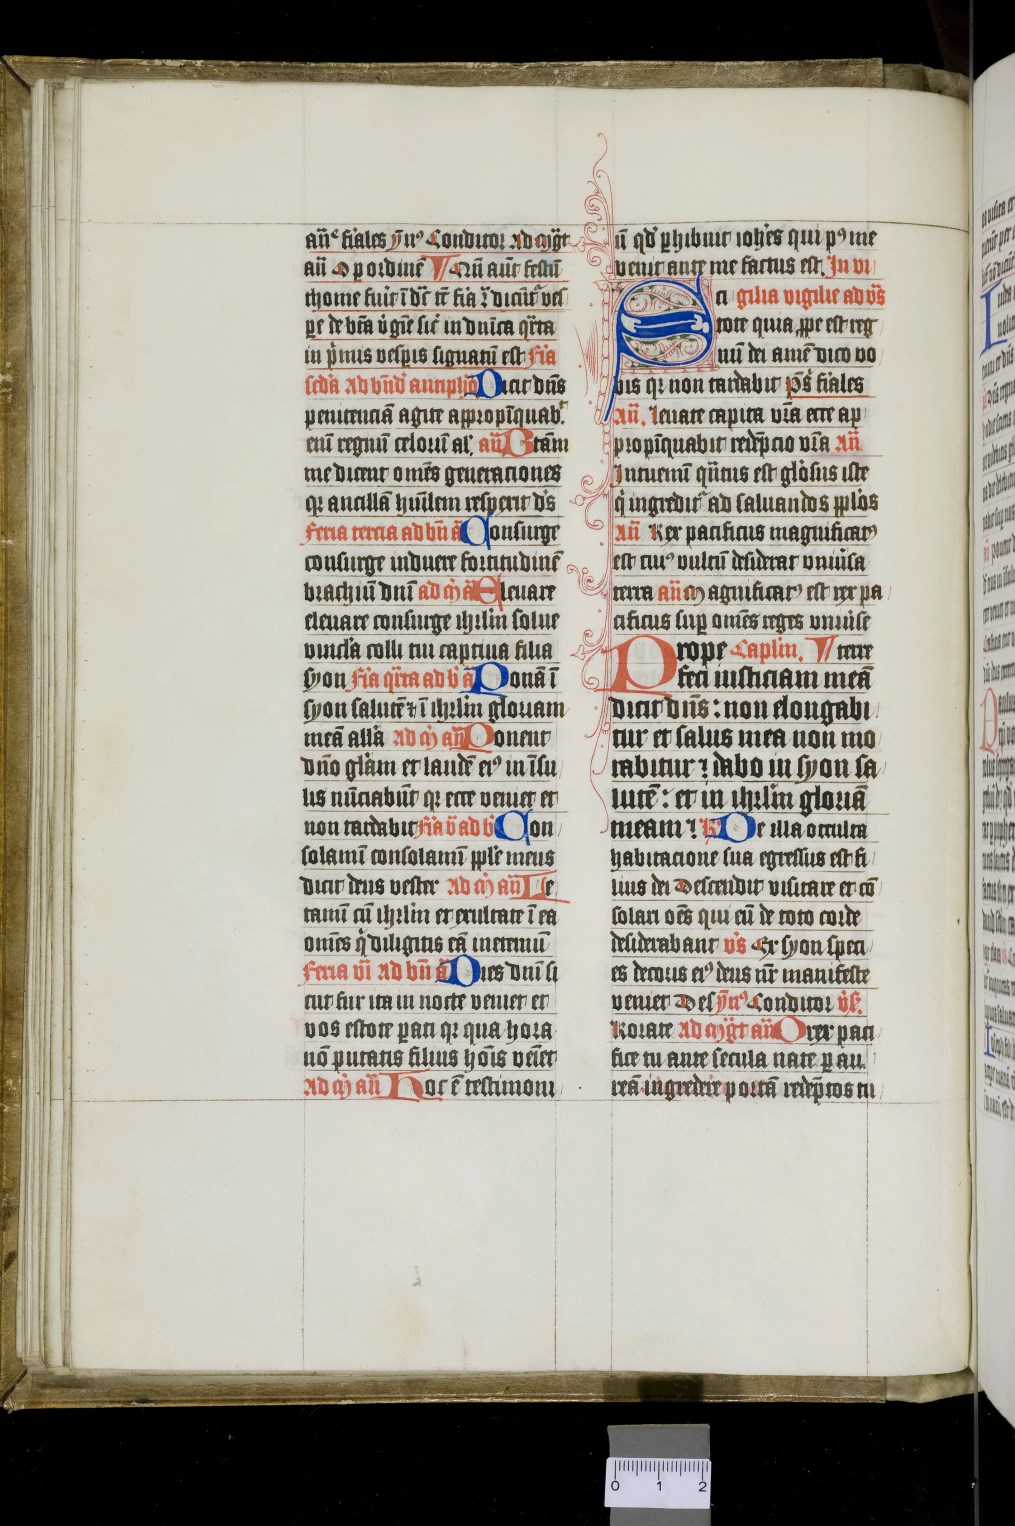 an̄e feriales ym̄s Conditor Ad mḡt
an̄ O p ordinē Cū aūt festū
thome fuit ī dīc
pe de b̄ta v̄gīe sic in dn̄ica q̄rta
in p̄mis vesp̄is signatū est Fīa
scd̄a Ad bn̄d antiph̄o Dicit dn̄s
penitenciā agite appropīquab̄
enī regnū celorū al'. an̄ B̄tām
me dicent om̄es generaciones
qr ancillā hūilem respexit d̄s
Feria tercia ad bn̄ ā Consurge
consurge induere fortitudinē
brachiū dn̄i ad m̄ ā Eleuare
eleuare consurge ihrl̄m solue
vincl̄a colli tui captiua filia
syon Fīa q̄rta ad b̄ ā Ponā ī
syon salutē ⁊ ī ihrl̄m gloriam
meā all̄a Ad m̄ an̄ Ponent
dn̄o gl̄am et laudē eiꝰ in īsu
lis nūciabūt qr ecce veniet et
non tardabit Fīa v̄ ad b̄ Con
solamī consolamī pp̄le meus
dicit deus vester Ad m̄ an̄ Le
tamī cū ihrl̄m et exultate ī ea
om̄es q̄ diligitis eā ineternū
Feria vī Ad bn̄ ā Dies dn̄i si
cut fur ita in nocte veniet et
vos estote pati qr qua hora
nō putatis filius hoīs veīet
Ad m̄ an̄ Hoc ē testimoni
ū qd̄ phibuit ioh̄es qui pꝰ me
venit ante me factus est. In vi
ci gilia vigilie ad v̄s
S tote quia ꝓpe est reg
nū dei amē dico vo
bis qr non tardabit p̄s fīales
An̄. leuate capita vr̄a ecce ap
propīquabit redēpcio vr̄a An̄
Intuemī q̄ntus est gl̄osus iste
q̄ ingredit̄ ad saluandos pp̄los
An̄ Rex pacificus magnificatꝰ
est cuiꝰ vultū desiderat vniūsa
terra an̄ Magnificatꝰ est rex pa
cificus sup om̄es reges vniūse
Prope Capl̄m. terre
feci iusticiam meā
dicit dn̄s : non elongabi
tur et salus mea non mo
rabitur ⁊ dabo in syon sa
lutē : et in ihrl̄m gloriā
meam ⁊ R̄ De illa occulta
habitacione sua egressus est fi
lius dei Descendit visitare et cō
solari oēs qui eū de toto corde
desiderabant v̄s Ex syon speci
es decoris eiꝰ deus nr̄ manifeste
veniet Des ym̄s Conditor v̄s̄.
Rorate Ad mḡt an̄ O rex paci
fice tu ante secula nate p au
reā ingredere portā redēptos tu